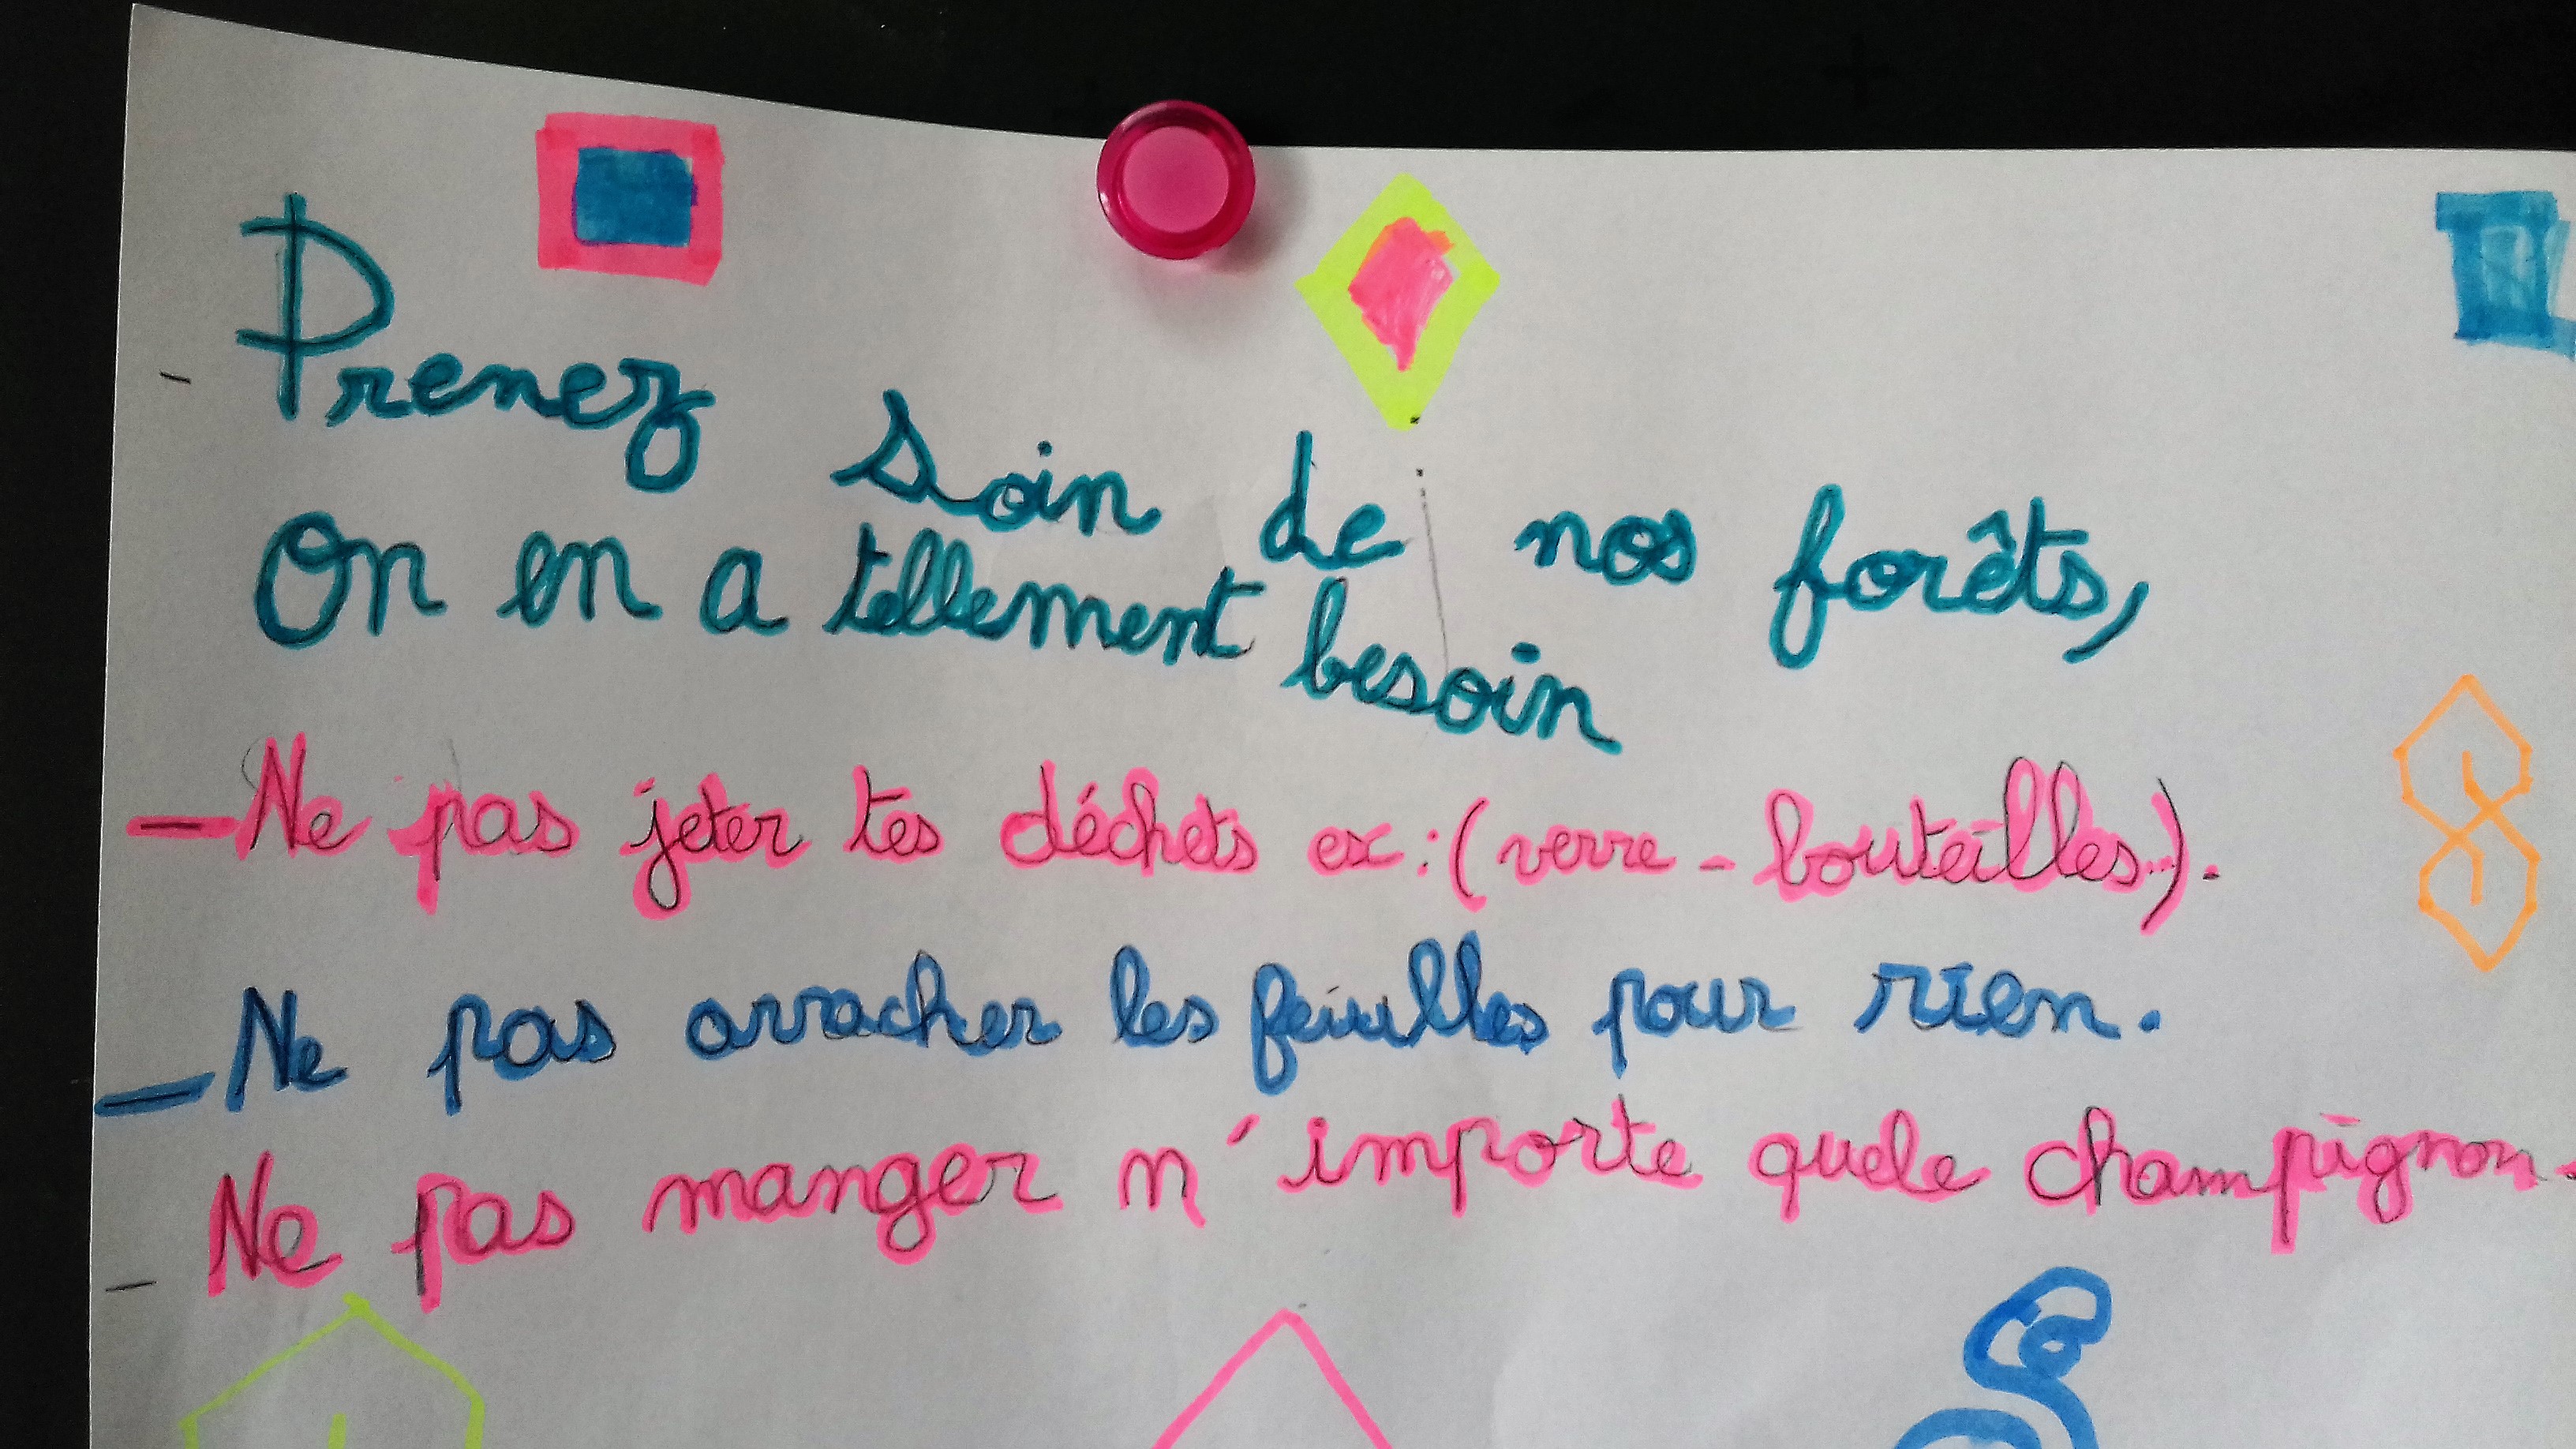 Prenez soin de nos forêts,
On en a tellement besoin
- Ne pas jeter tes déchets ex : (verre - bouteilles...).
- Ne pas arracher les feiuilles pour rien.
- Ne pas manger n'importe quele champignon.